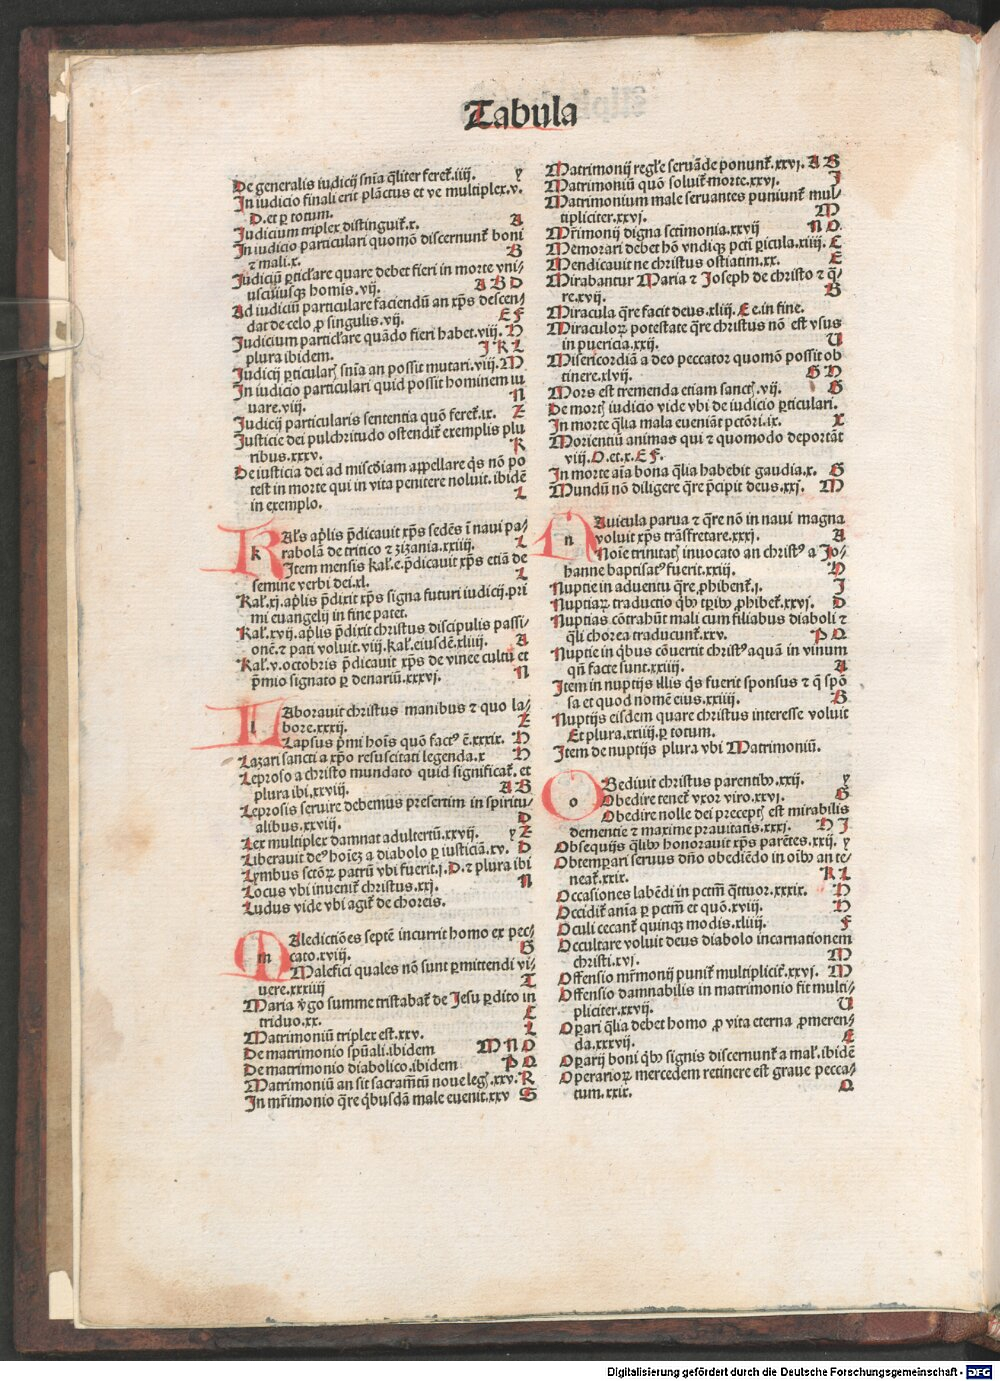 Tabula
De generalis iudicij snīa q̄liter feret̄.iiij. y
In iudicio finali erit plāctus et ve multiplex.v.
D.et ꝑ totum.
Judicium triplex distinguit̄.x. A
In iudicio particulari quomō discernunt̄ boni
⁊ mali.x. B
Judiciū ꝑticl'are quare debet fieri in morte vni⸗
uscuiusq; homis.vij. A B D
Ad iudiciū particulare faciendū an xp̄s descen⸗
dat de celo ꝓ singulis.vij. E F
Judicium particl'are quādo fieri habet.viij. H
plura ibidem. J K L
Judicij ꝑticularꝭ snīa an possit mutari.viij. M
In iudicio particulari quid possit hominem iu
uare.viij. N
Judicij particularis sententia quō feret̄.ix. Z
Justicie dei pulchritudo ostendit̄ exemplis plu
ribus.xxxv. K
De iusticia dei ad miscd̄iam appellare q̄s nō po
test in morte qui in vita penitere noluit.ibidē
in exemplo. L
k Al's apl'is p̄dicauit xp̄s sedēs ī naui pa⸗
rabolā de tritico ⁊ zizania.xxiiij. L
Item mensis kal'.e.p̄dicauit xp̄s etiā de
semine verbi dei.xl. L
Kal'.xj.apl'is p̄dixit xp̄s signa futuri iudicij.pri
mi euangelij in fine patet.
Kal'.xvij.apl'is p̄dixit christus discipulis passi⸗
onē.⁊ pati voluit.viij.kal'.eiusdē.xliiij. A
Kal'.v.octobris p̄dicauit xp̄s de vinee cultu et
p̄mio signato ꝑ denariū.xxxvj. N
l Aborauit christus manibus ⁊ quo la⸗
bore.xxxij. Z
Lapsus p̄mi hoīs quō factꝰ ē.xxxix. H
Lazari sancti a xp̄o resuscitati legenda.x H
Leproso a christo mundato quid significat̄. et
plura ibi.xxviij. A B
Leprosis seruire debemus presertim in spiritu⸗
alibus.xxviij. D
Lex multiplex damnat adulteriū.xxvij. y Z
Liberauit deꝰ hoīez a diabolo ꝑ iusticiā.xv. D
Lymbus sctōꝝ patrū vbi fuerit.j.D.⁊ plura ibi
Locus vbi inuenit̄ christus.xxj. N
Ludus vide vbi agit̄ de choreis.
m Aledictiōes septē incurrit homo ex pec⸗
cato.xviij. G
Malefici quales nō sunt ꝑmittendi vi⸗
uere.xxxiiij T
Maria v̄go summe tristabat̄ de Jesu ꝑdito in
triduo.xx. C
Matrimoniū triplex est.xxv. L
De matrimonio spūali.ibidem M N O
De matrimonio diabolico.ibidem P Q
Matrimoniū an sit sacramtū noue legꝭ.xxv. R
In mr̄imonio q̄re q̄busdā male euenit.xxv S
Matrimonij regl'e seruāde ponunt̄.xxvj. A B
Matrimoniū quō soluit̄ morte.xxvj. J
Matrimonium male seruantes puniunt̄ mul⸗
tipliciter.xxvj. M
Mr̄imonij digna sctimonia.xxvij N O
Memorari debet hō vndiq; pcti ꝑicula.xiiij. C
Mendicauit ne christus ostiatim.xx. E
Mirabantur Maria ⁊ Joseph de christo ⁊ q̄⸗
re.xvij. B
Miracula q̄re facit deus.xliij. E e.in fine.
Miraculoꝝ potestate q̄re christus nō est vsus
in puericia.xxij. U
Misericordiā a deo peccator quomō possit ob
tinere.xlvij. G H
Mors est tremenda etiam sanctꝭ.vij. G
De mortꝭ iudicio vide vbi de iudicio ꝑticulari.
In morte q̄lia mala eueniāt pctōri.ix. X
Morientiū animas qui ⁊ quomodo deportāt
viij.O.et.x.E F.
In morte aīa bona q̄lia habebit gaudia.x. G
Mundū nō diligere q̄re p̄cipit deus.xxj. M
n Auicula parua ⁊ q̄re nō in naui magna
voluit xp̄s trāsfretare.xxxj. A
Noīe trinitatꝭ inuocato an christꝰ a Jo⸗
hanne baptisatꝰ fuerit.xxiij. D
Nuptie in aduentu q̄re ꝓhibent̄.j. J
Nuptiaꝝ traductio q̄bꝰ tꝑibꝰ ꝓhibet̄.xxvj. D
Nuptias cōtrahūt mali cum filiabus diaboli ⁊
q̄li chorea traducunt̄.xxv. P Q
Nuptie in q̄bus cōuertit christꝰ aquā in vinum
qn̄ facte sunt.xxiiij. A
Item in nuptijs illis q̄s fuerit sponsus ⁊ q̄ spō
sa et quod nomē eius.xxiiij. B
Nuptijs eisdem quare christus interesse voluit
Et plura.xxiiij.ꝑ totum.
Item de nuptijs plura vbi Matrimoniū.
o Bediuit christus parentibꝰ.xxij. y
Obedire tenet̄ vxor viro.xxvj. G
Obedire nolle dei preceptꝭ est mirabilis
dementie ⁊ maxime prauitatis.xxxj. H J
Obsequijs q̄libꝰ honorauit xp̄s parētes.xxij. y
Obtemꝑari seruus dn̄o obediēdo in oībꝰ an te⸗
neat̄.xxix. K L
Occasiones labēdi in pctm̄ q̄ttuor.xxxix. H
Occidit̄ anīa ꝑ pctm̄ et quō.xviij. H
Oculi cecant̄ quinq; modis.xliiij. F
Occultare voluit deus diabolo incarnationem
christi.xvj. M
Offensio mr̄monij punit̄ multiplicit̄.xxvj. M
Offensio damnabilis in matrimonio fit multi⸗
pliciter.xxvij. U
Oꝑari q̄lia debet homo ꝓ vita eterna ꝓmeren⸗
da.xxxvij. E
Oꝑarij boni q̄bꝰ signis discernunt̄ a mal'.ibidē
Operarioꝝ mercedem retinere est graue pecca⸗
tum.xxix. Q
Digitalisierung gefördert durch die Deutsche Forschungsgemeinschaft - DFG